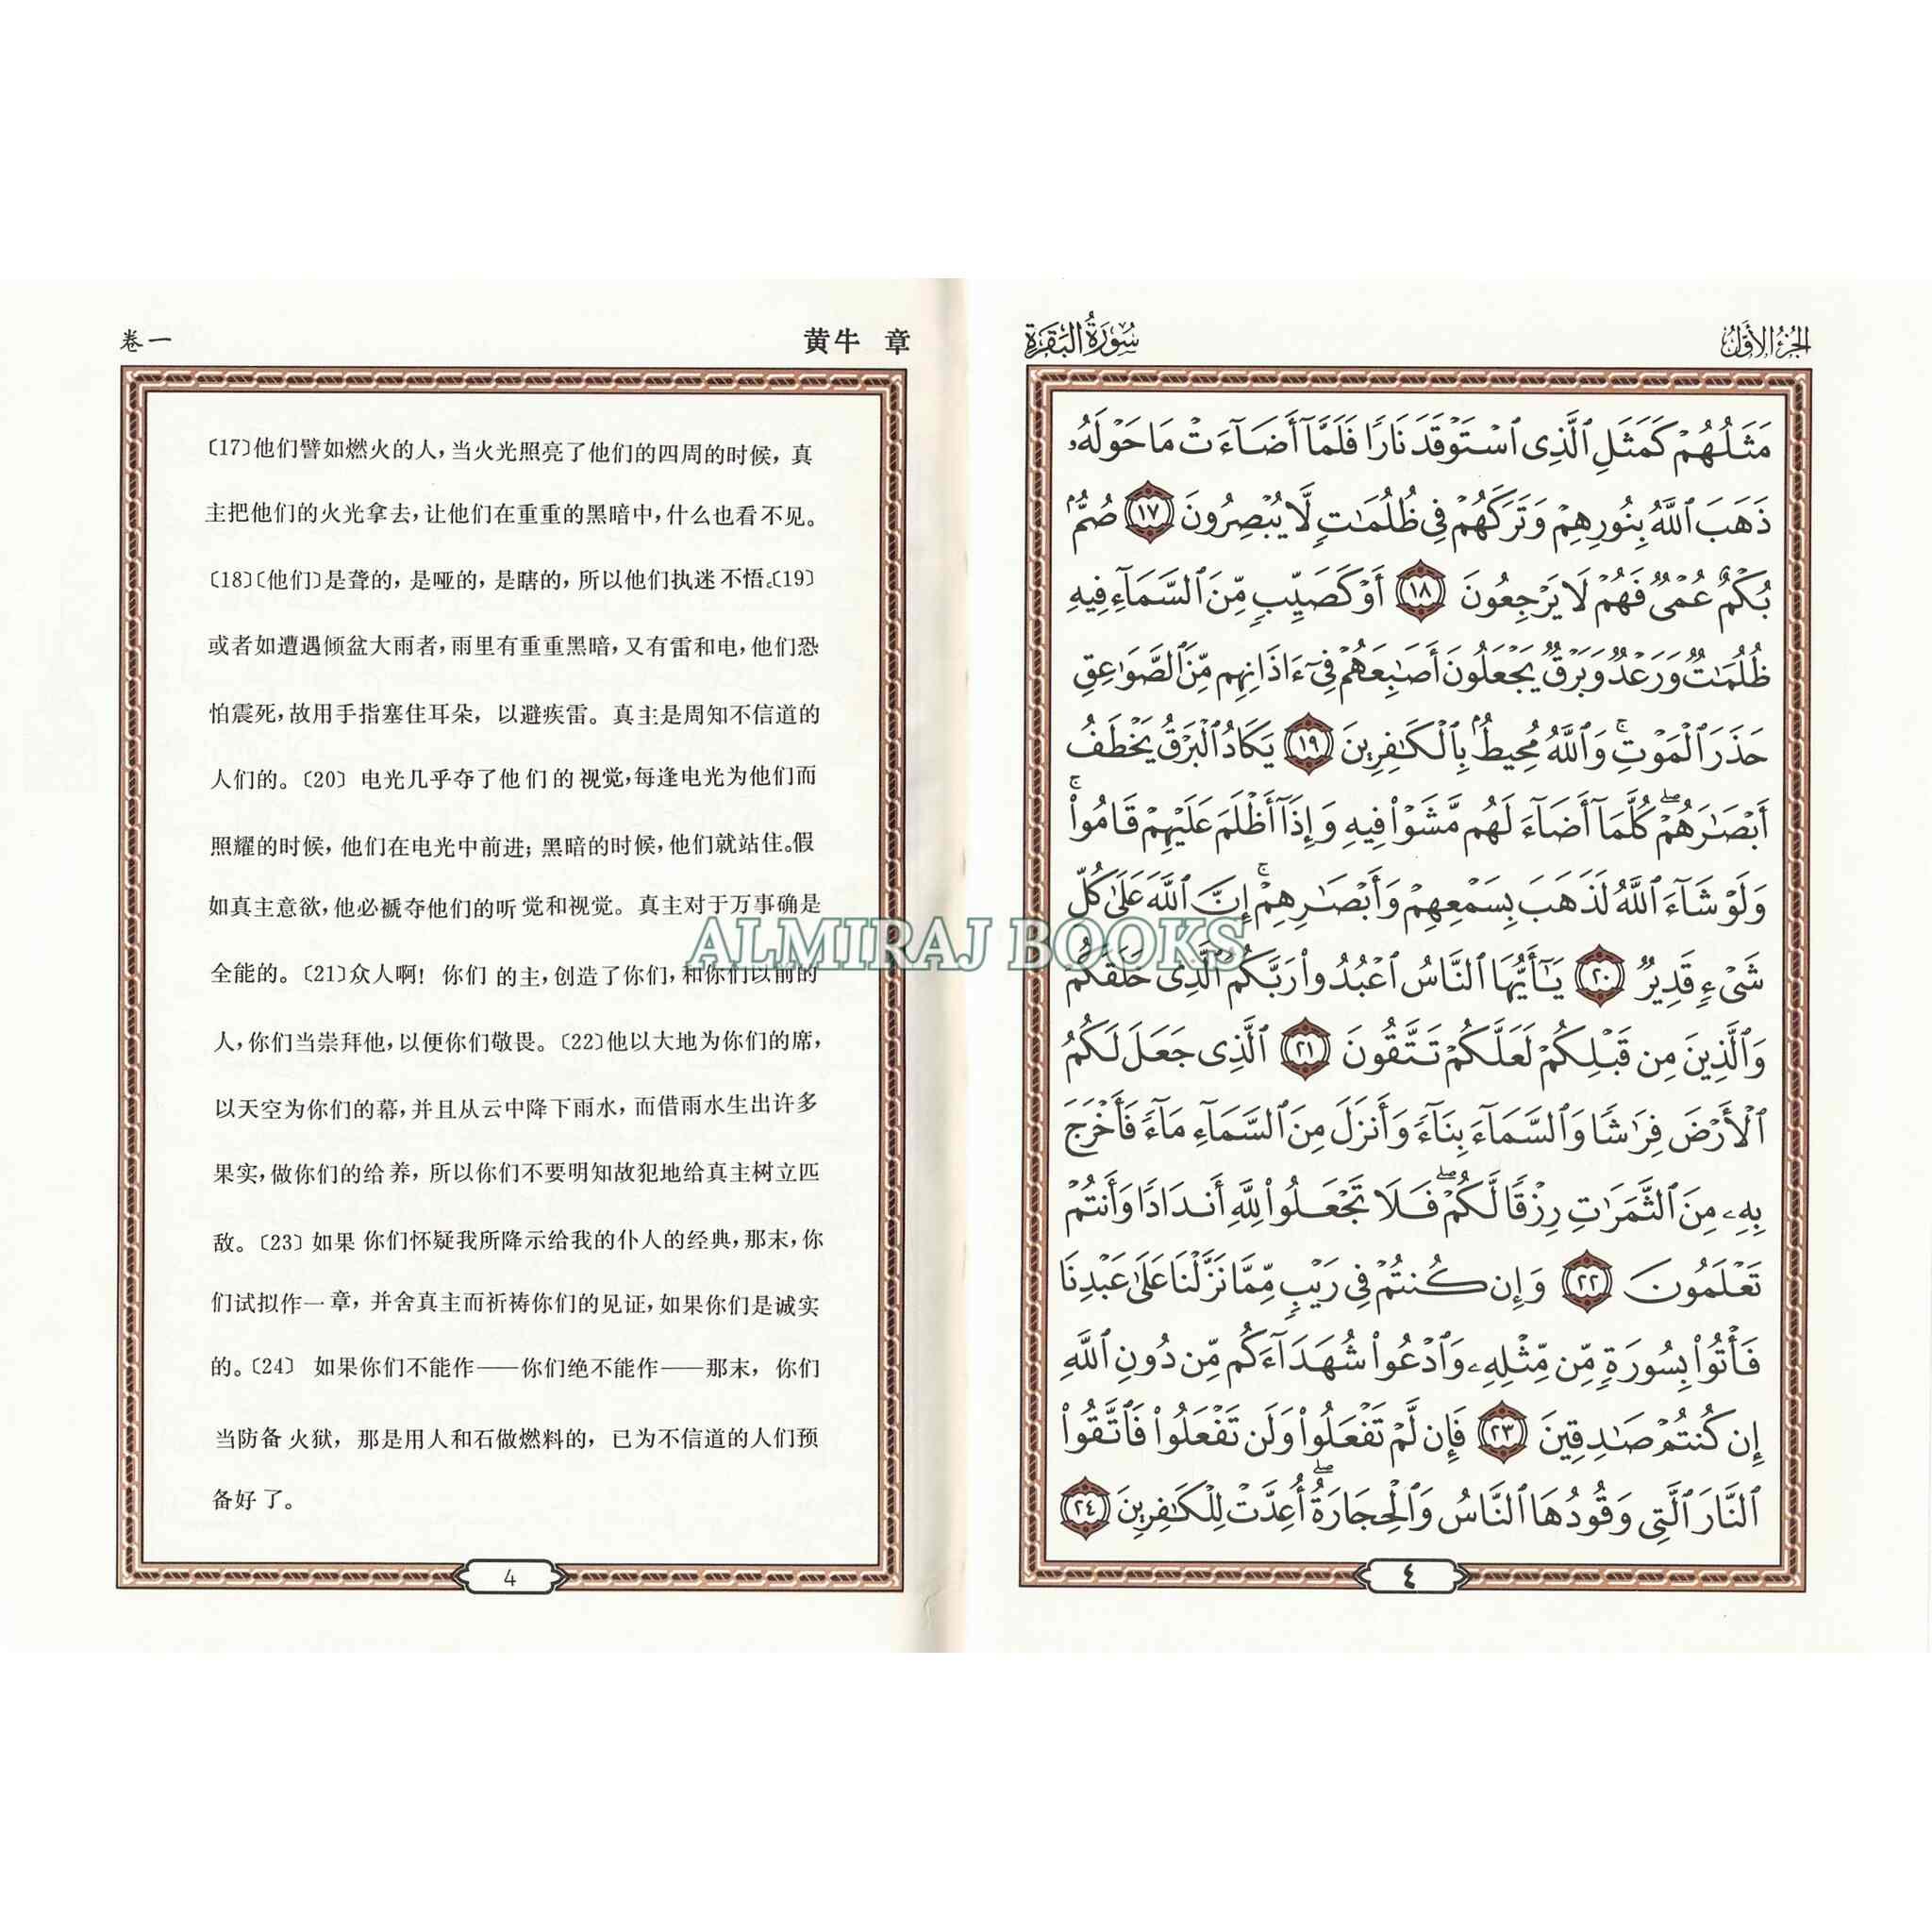 卷一
黄牛 章
〔17〕他们譬如燃火的人，当火光照亮了他们的四周的时候，真
主把他们的火光拿去，让他们在重重的黑暗中，什么也看不见。
〔18〕〔他们〕是聋的，是哑的，是瞎的，所以他们执迷不悟。〔19〕
或者如遭遇倾盆大雨者，雨里有重重黑暗，又有雷和电，他们恐
怕震死，故用手指塞住耳朵，以避疾雷。真主是周知不信道的
人们的。〔20〕电光几乎夺了他们的视觉，每逢电光为他们而
照耀的时候，他们在电光中前进；黑暗的时候，他们就站住。假
如真主意欲，他必褫夺他们的听觉和视觉。真主对于万事确是
全能的。〔21〕众人啊！你们的主，创造了你们，和你们以前的
人，你们当崇拜他，以便你们敬畏。〔22〕他以大地为你们的席，
以天空为你们的幕，并且从云中降下雨水，而借雨水生出许多
果实，做你们的给养，所以你们不要明知故犯地给真主树立匹
敌。〔23〕如果你们怀疑我所降示给我的仆人的经典，那末，你
们试拟作一章，并舍真主而祈祷你们的见证，如果你们是诚实
的。〔24〕如果你们不能作——你们绝不能作——那末，你们
当防备火狱，那是用人和石做燃料的，已为不信道的人们预
备好了。
4
الجزء الأول
سورة البقرة
مَثَلُهُمْ كَمَثَلِ ٱلَّذِى ٱسْتَوْقَدَ نَارًا فَلَمَّآ أَضَآءَتْ مَا حَوْلَهُۥ
ذَهَبَ ٱللَّهُ بِنُورِهِمْ وَتَرَكَهُمْ فِى ظُلُمَٰتٍ لَّا يُبْصِرُونَ ١٧ صُمٌّۢ
بُكْمٌ عُمْىٌ فَهُمْ لَا يَرْجِعُونَ ١٨ أَوْ كَصَيِّبٍ مِّنَ ٱلسَّمَآءِ فِيهِ
ظُلُمَٰتٌ وَرَعْدٌ وَبَرْقٌ يَجْعَلُونَ أَصَٰبِعَهُمْ فِىٓ ءَاذَانِهِم مِّنَ ٱلصَّوَٰعِقِ
حَذَرَ ٱلْمَوْتِ ۚ وَٱللَّهُ مُحِيطٌۢ بِٱلْكَٰفِرِينَ ١٩ يَكَادُ ٱلْبَرْقُ يَخْطَفُ
أَبْصَٰرَهُمْ ۖ كُلَّمَآ أَضَآءَ لَهُم مَّشَوْا۟ فِيهِ وَإِذَآ أَظْلَمَ عَلَيْهِمْ قَامُوا۟ ۚ
وَلَوْ شَآءَ ٱللَّهُ لَذَهَبَ بِسَمْعِهِمْ وَأَبْصَٰرِهِمْ ۚ إِنَّ ٱللَّهَ عَلَىٰ كُلِّ
شَىْءٍ قَدِيرٌ ٢٠ يَٰٓأَيُّهَا ٱلنَّاسُ ٱعْبُدُوا۟ رَبَّكُمُ ٱلَّذِى خَلَقَكُمْ
وَٱلَّذِينَ مِن قَبْلِكُمْ لَعَلَّكُمْ تَتَّقُونَ ٢١ ٱلَّذِى جَعَلَ لَكُمُ
ٱلْأَرْضَ فِرَٰشًا وَٱلسَّمَآءَ بِنَآءً وَأَنزَلَ مِنَ ٱلسَّمَآءِ مَآءً فَأَخْرَجَ
بِهِۦ مِنَ ٱلثَّمَرَٰتِ رِزْقًا لَّكُمْ ۖ فَلَا تَجْعَلُوا۟ لِلَّهِ أَندَادًا وَأَنتُمْ
تَعْلَمُونَ ٢٢ وَإِن كُنتُمْ فِى رَيْبٍ مِّمَّا نَزَّلْنَا عَلَىٰ عَبْدِنَا
فَأْتُوا۟ بِسُورَةٍ مِّن مِّثْلِهِۦ وَٱدْعُوا۟ شُهَدَآءَكُم مِّن دُونِ ٱللَّهِ
إِن كُنتُمْ صَٰدِقِينَ ٢٣ فَإِن لَّمْ تَفْعَلُوا۟ وَلَن تَفْعَلُوا۟ فَٱتَّقُوا۟
ٱلنَّارَ ٱلَّتِى وَقُودُهَا ٱلنَّاسُ وَٱلْحِجَارَةُ ۖ أُعِدَّتْ لِلْكَٰفِرِينَ ٢٤
٤
ALMIRAJ BOOKS